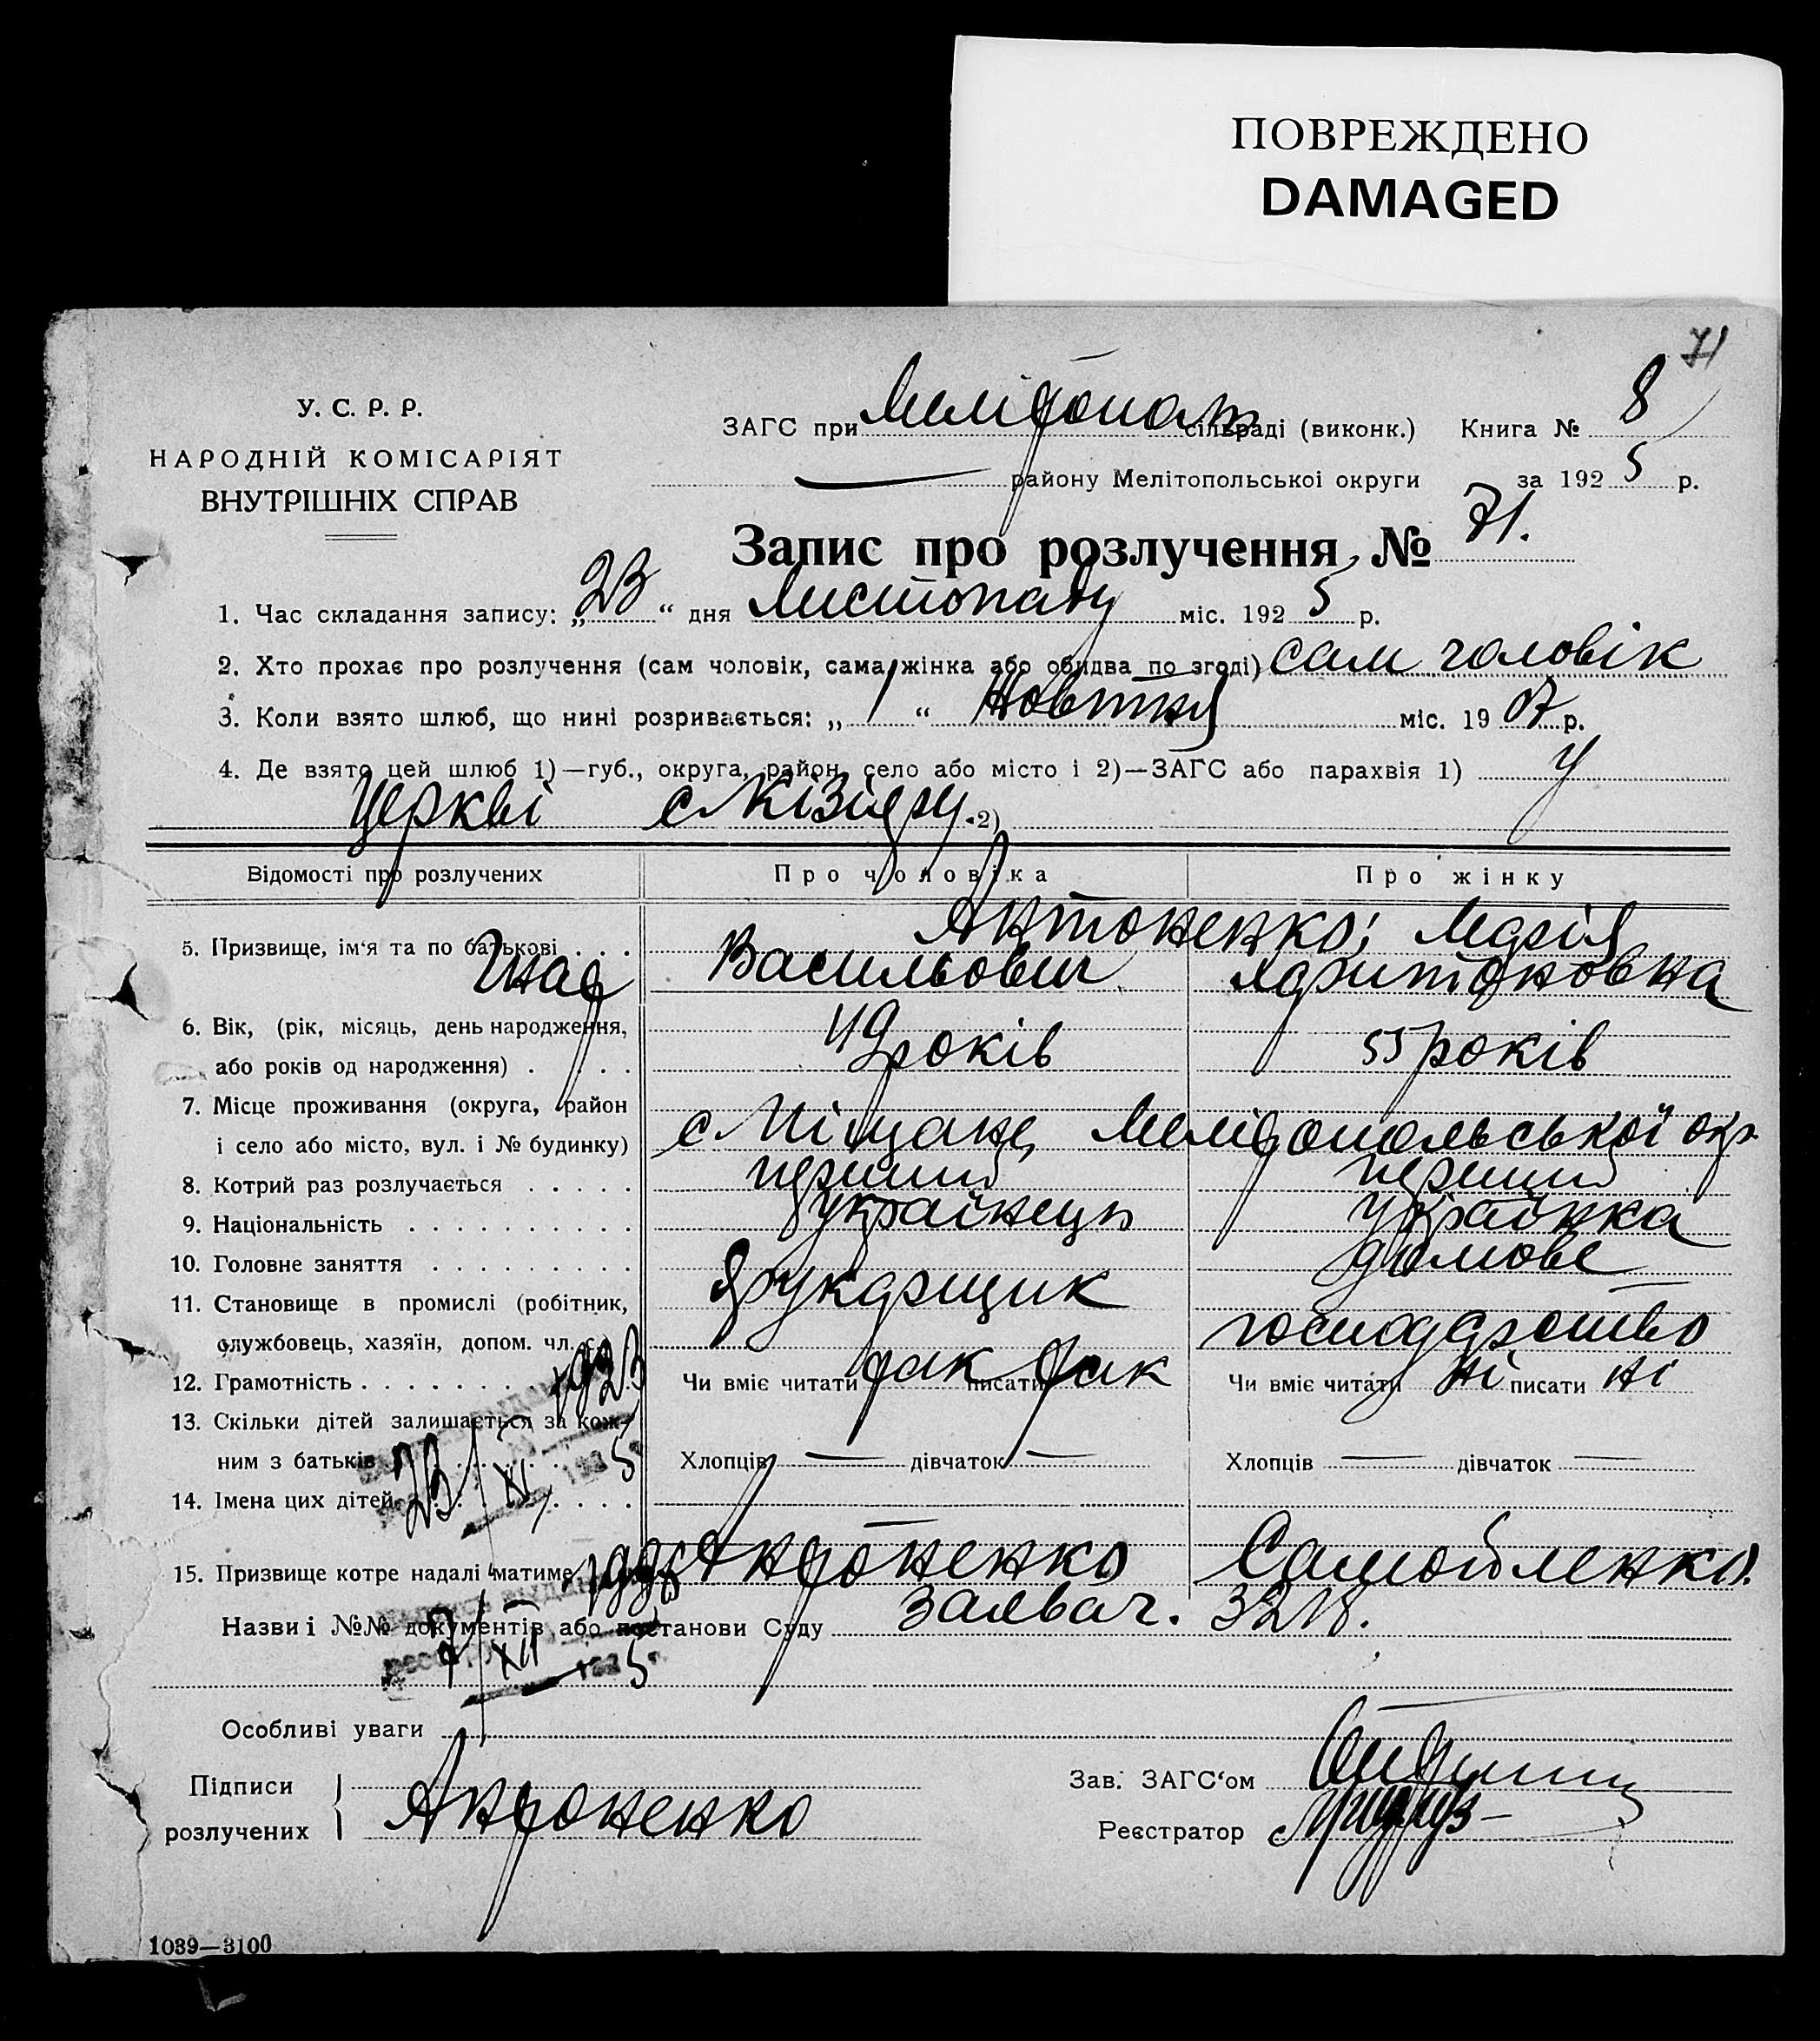 ПОВРЕЖДЕНО
DAMAGED
71
У. С. Р. Р.
НАРОДНІЙ КОМІСАРІЯТ
ВНУТРІШНІХ СПРАВ
ЗАГС при Мелітополь сільраді (виконк.) Книга № 8
району Мелітопольської округи за 1925 р.
Запис про розлучення № 71.
1. Час складання запису: „23“ дня листопаду міс. 1925 р.
2. Хто прохає про розлучення (сам чоловік, сама жінка або обидва по згоді) сам чоловік
3. Коли взято шлюб, що нині розривається: „1“ Жовтня міс. 1907 р.
4. Де взято цей шлюб 1)—губ., округа, район, село або місто і 2)—ЗАГС або парахвія 1) у
церкві с Кізіяру. 2)
Відомості про розлучених Про чоловіка Про жінку
5. Призвище, ім'я та по батькові . . . Антоненко; Марія
Гнат Васильович Харитоновна
6. Вік, (рік, місяць, день народження,
або років од народження) . . . . 49 років 55 років
7. Місце проживання (округа, район
і село або місто, вул. і № будинку) с Піщане, Мелітопольської окр.
8. Котрий раз розлучається . . . . . перший перший
9. Національність . . . . . . . . . . українець українка
10. Головне заняття . . . . . . . . . домове
11. Становище в промислі (робітник,
службовець, хазяїн, допом. чл. с.) друкарщик господарство
12. Грамотність . . . . . . . Чи вміє читати так писати так Чи вміє читати ні писати ні
13. Скільки дітей залишається за кож-
ним з батьків . . . . . . . Хлопців — дівчаток — Хлопців — дівчаток —
14. Імена цих дітей . . . . . . .
1923
23/XI 1925
15. Призвище котре надалі матиме Антоненко Самойленко.
Назви і №№ документів або постанови Суду заява ч. 3218.
7/XII 1925
Особливі уваги
Підписи
розлучених Антоненко
Зав. ЗАГС'ом
Реєстратор
1039—3100